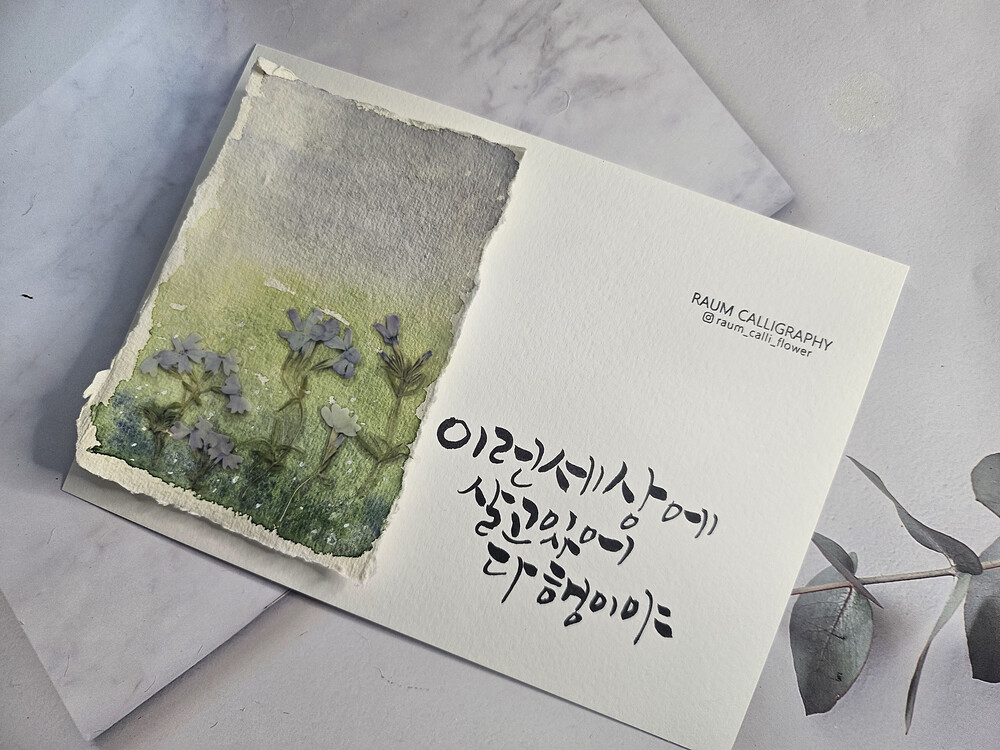 RAUM CALLIGRAPHY
raum_calli_flower
이런세상에
살고있어
다행이야